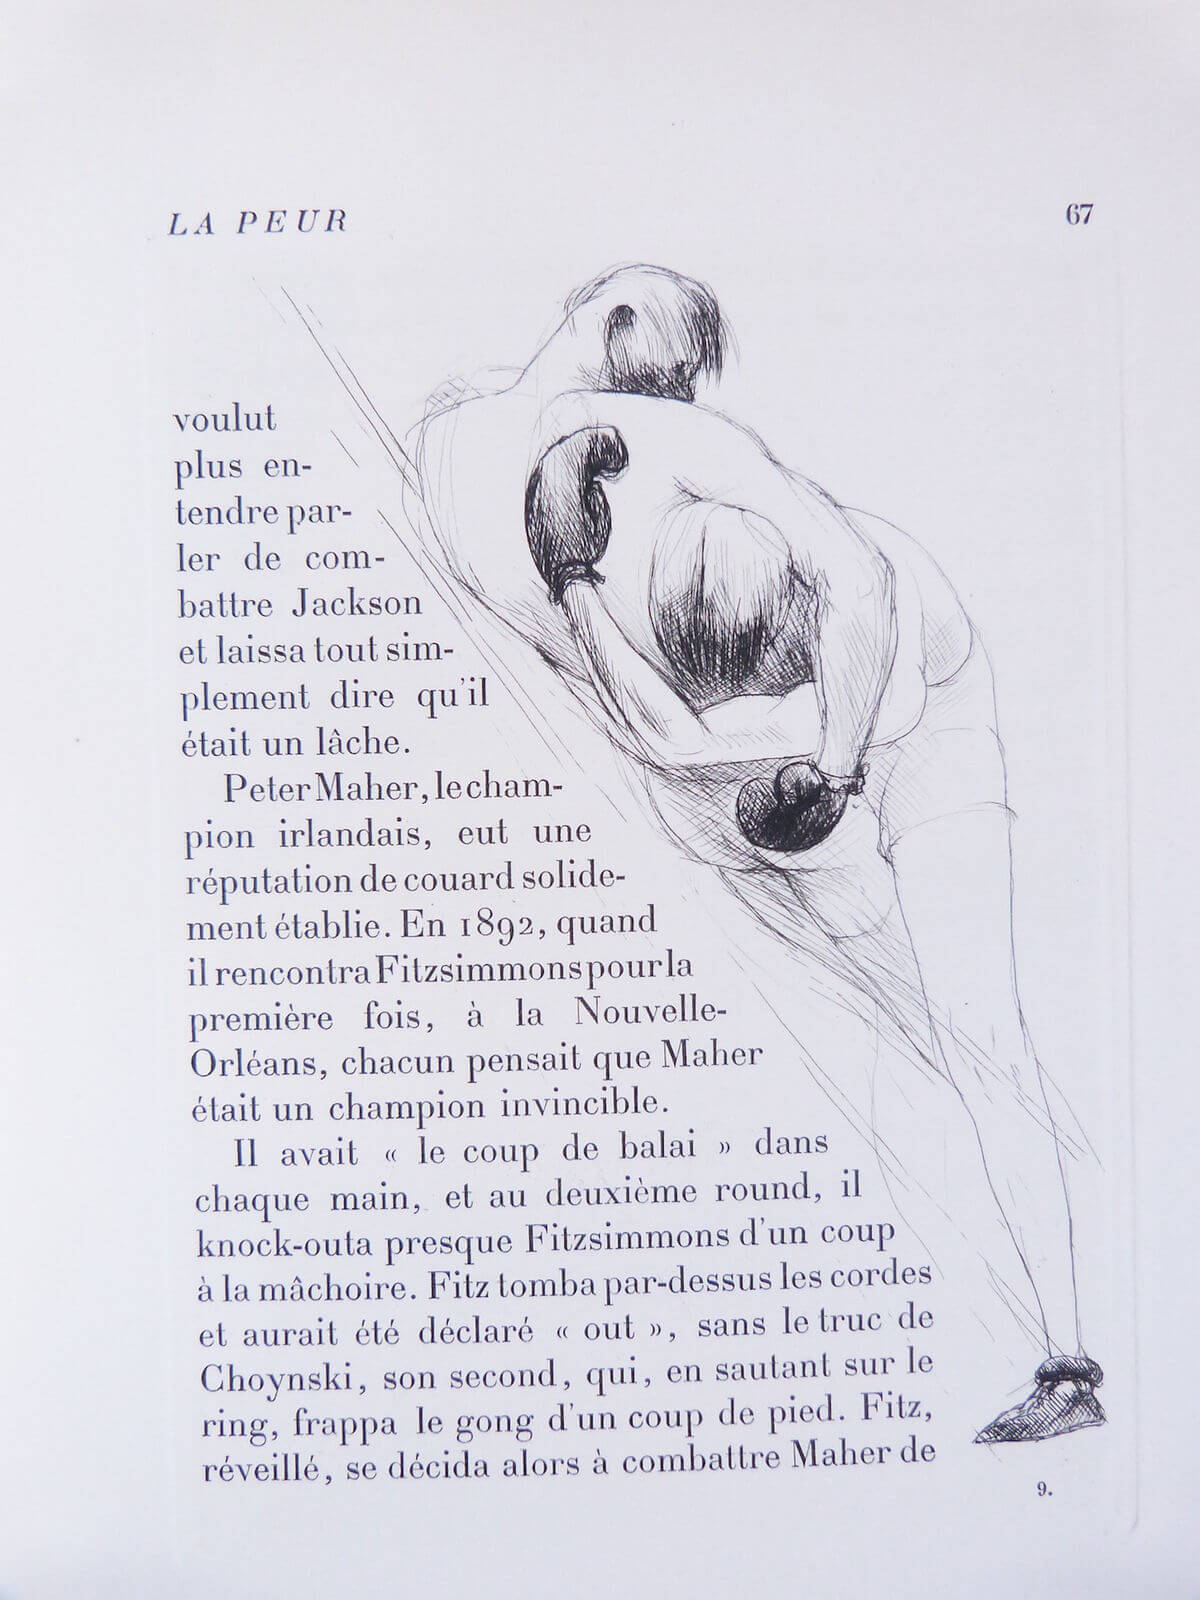 LA PEUR 67
voulut
plus en-
tendre par-
ler de com-
battre Jackson
et laissa tout sim-
plement dire qu'il
était un lâche.
Peter Maher, le cham-
pion irlandais, eut une
réputation de couard solide-
ment établie. En 1892, quand
il rencontra Fitzsimmons pour la
première fois, à la Nouvelle-
Orléans, chacun pensait que Maher
était un champion invincible.
Il avait « le coup de balai » dans
chaque main, et au deuxième round, il
knock-outa presque Fitzsimmons d'un coup
à la mâchoire. Fitz tomba par-dessus les cordes
et aurait été déclaré « out », sans le truc de
Choynski, son second, qui, en sautant sur le
ring, frappa le gong d'un coup de pied. Fitz,
réveillé, se décida alors à combattre Maher de
9.